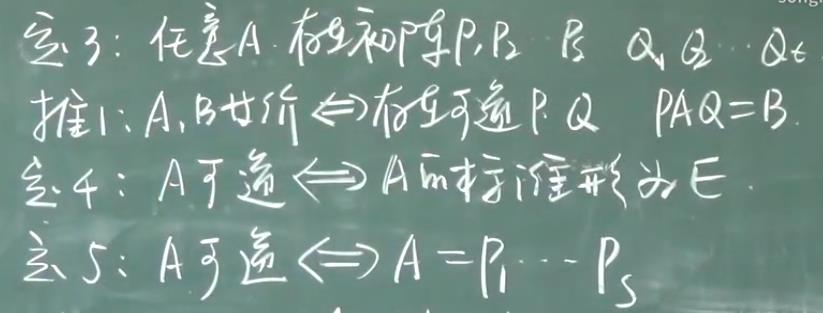 定3: 任意A. 存在初阵P₁P₂…Pₛ Q₁ Q₂…Qₜ
推1: A,B等价⇔存在可逆P.Q PAQ=B.
定4: A可逆⇔A的标准形为E.
定5: A可逆⇔A=P₁…Pₛ